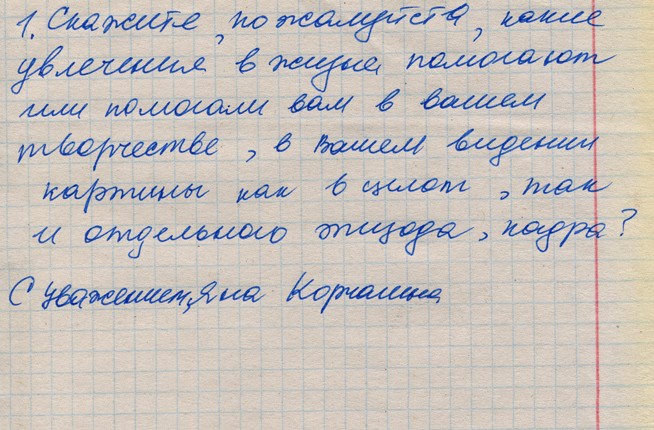 1. Скажите, пожалуйста, какие
увлечения в жизни помогают
или помогали вам в вашем
творчестве, в вашем видении
картины как в целом, так
и отдельного эпизода, кадра?
С уважением, Яна